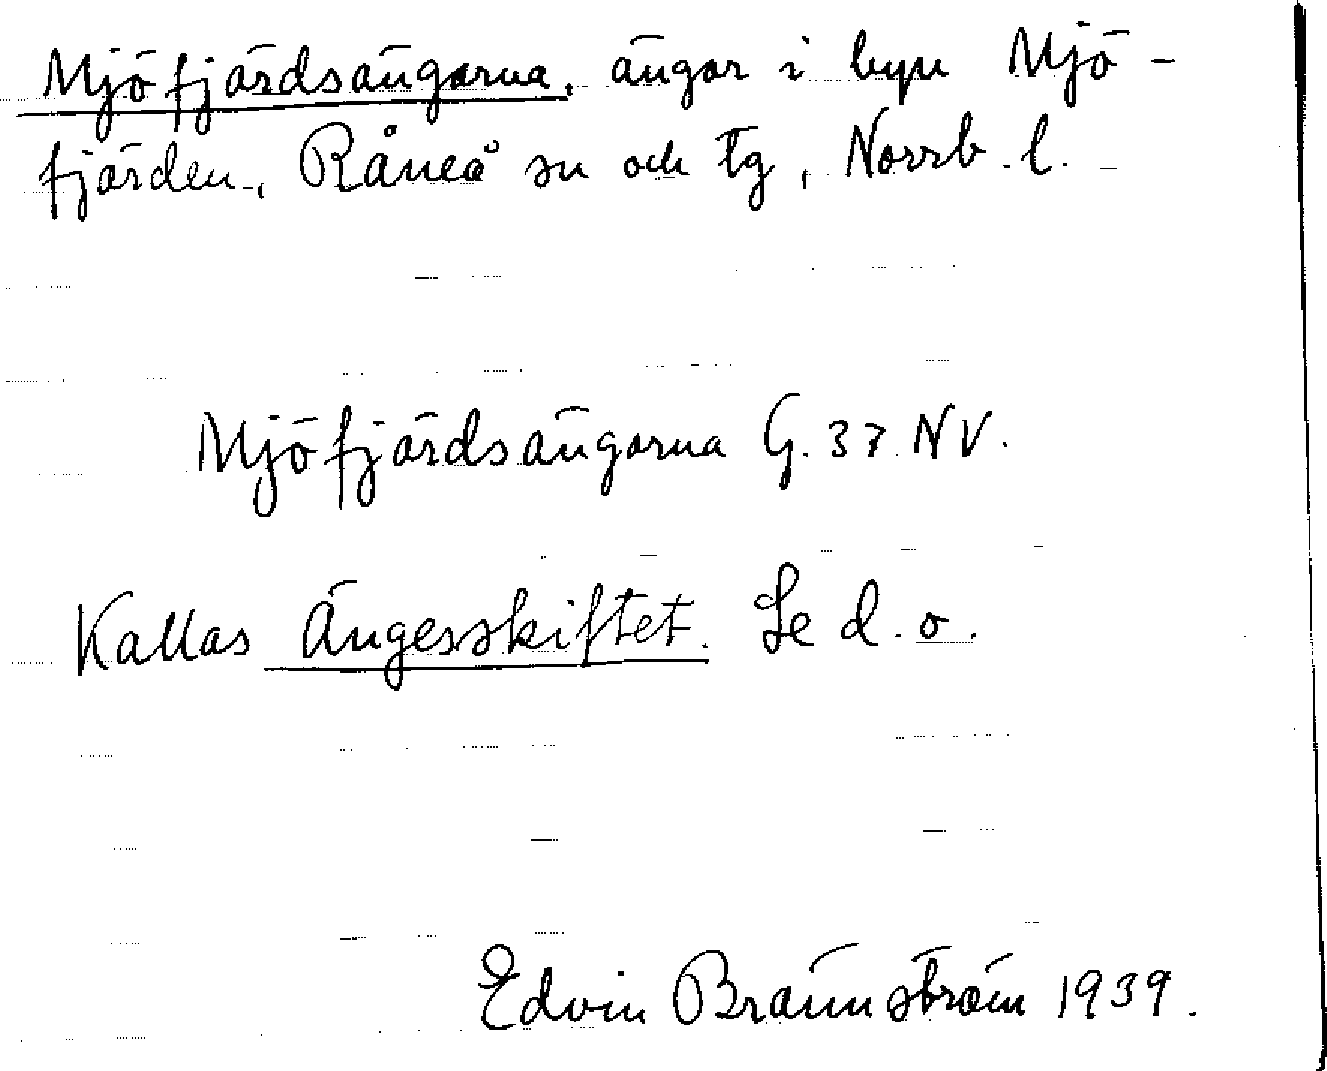 Mjöfjärdsängarna, ängar i byn Mjö-
fjärden, Råneå sn och tg, Norrb. l.
Mjöfjärdsängarna G. 37 NV.
Kallas Ängesskiftet. Se d. o.
Edvin Brännström 1939.